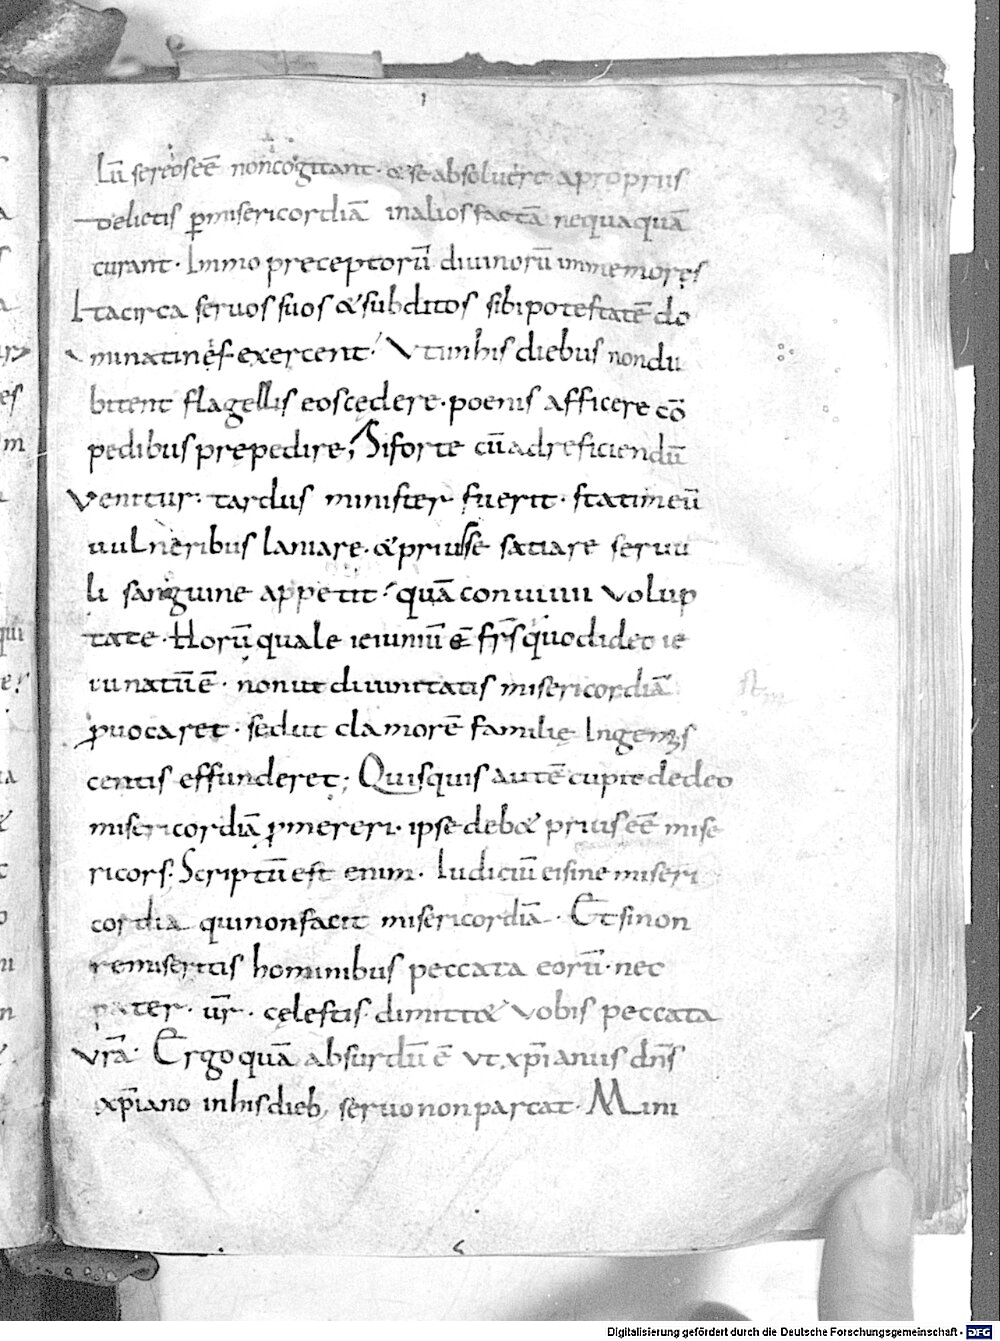 23
Lū sereoseē noncogitant· & se absoluere a propriis
delictis ꝑmisericordiā inalios factā nequaquā
curant· Immo preceptorū diuinorū inmemores
Ita circa seruos suos & subditos sibi potestatē do
minationes exercent· Ut in his diebus non du
bitent flagellis eos cędere· poenis afficere cō
pedibus prepedire; Si forte cū ad reficiendū
uenitur· tardus minister fuerit· statim eū
uulneribus laniare· & prius se satiare seruu
li sanguine appetit quā conuiuii volup
tate· Horū quale ieiuniū ē frs̄ quod ideo ie
iunatū ē· non ut diuinitatis misericordiā
ꝓuocaret· sed ut clamorē familię Inge
centis effunderet; Quisquis autē cupit de deo
misericordiā ꝓmereri· ipse deb& prius eē mise
ricors· Scriptū est enim· Iudiciū ei sine miseri
cordia qui non facit misericordiā· Et si non
remiseritis hominibus peccata eorū· nec
pater· ur̄· cęlestis dimitt& vobis peccata
vr̄a· Ergo quā absurdū ē vt xp̄ianus dn̄s
xp̄iano in his dieb; seruo non parcat· Mini
Digitalisierung gefördert durch die Deutsche Forschungsgemeinschaft - DFG